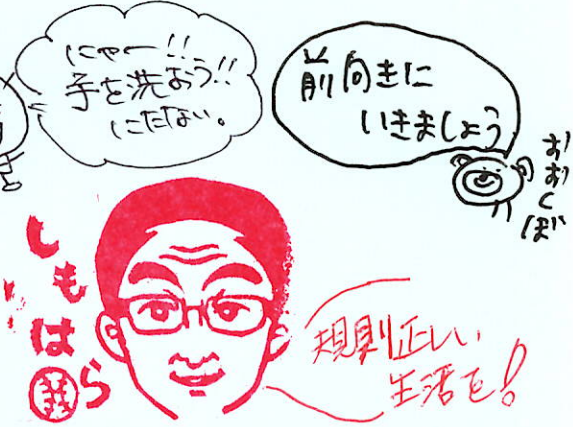 にゃー!!
手を洗おう!!
にだない。
前向きに
いきましょう
おおくぼ
しもはら
規則正しい
生活を!